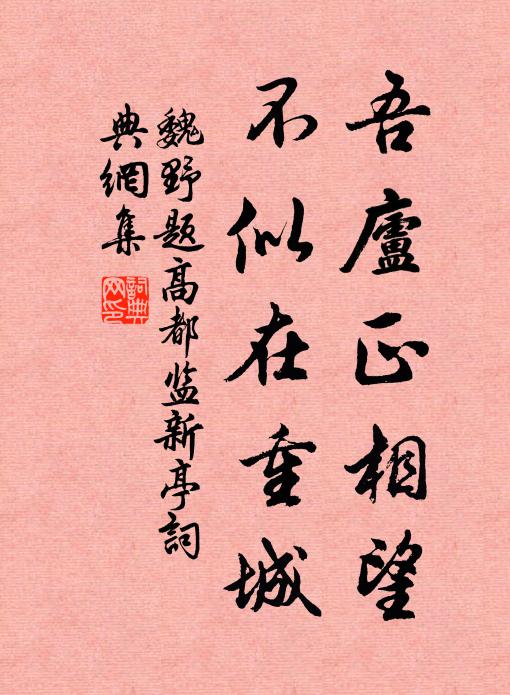 吾廬正相望
不似在重城
魏野题高都监新亭詞
典網集
詞典
网印